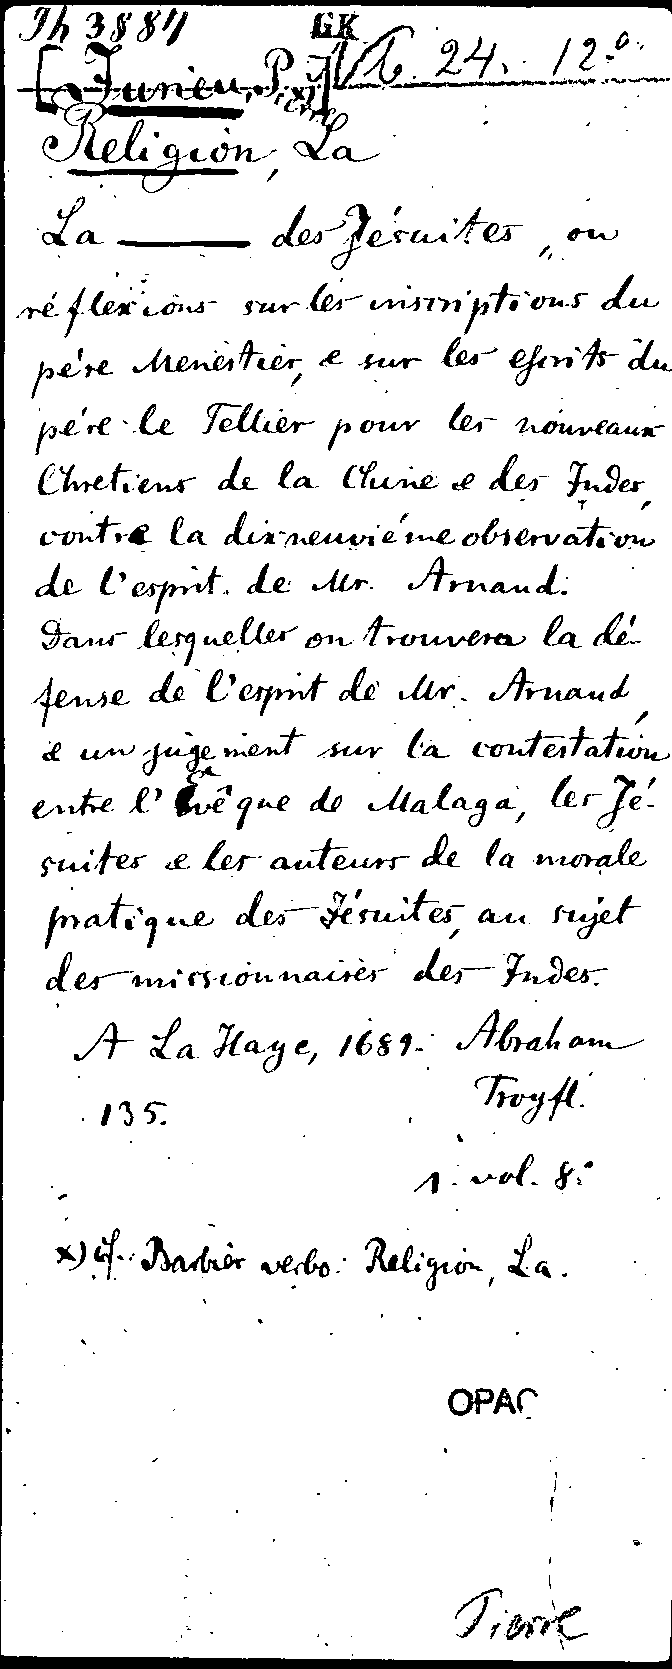 Th 3887 GK
[Jurieu, P. x)] N b. 24. 12°
ierre
Religion, La
La ——— des Jésuites, ou
réflexions sur les inscriptions du
pére Menestier, e sur les escrits du
pére le Tellier pour les nouveaux
Chretiens de la Chine e des Indes,
contre la dixneuviéme observation
de l'esprit de Mr. Arnaud.
Dans lesquelles on trouvera la dé-
fense de l'esprit de Mr. Arnaud,
e un jugement sur la contestation
entre l'Evêque de Malaga, les Jé-
suites e les auteurs de la morale
pratique des Jésuites, au sujet
des missionnaires des Indes.
A La Haye, 1689. Abraham
135. Troyfl.
1. vol. 8°
x) cf. Barbier verbo: Religion, La.
OPAC
Pierre